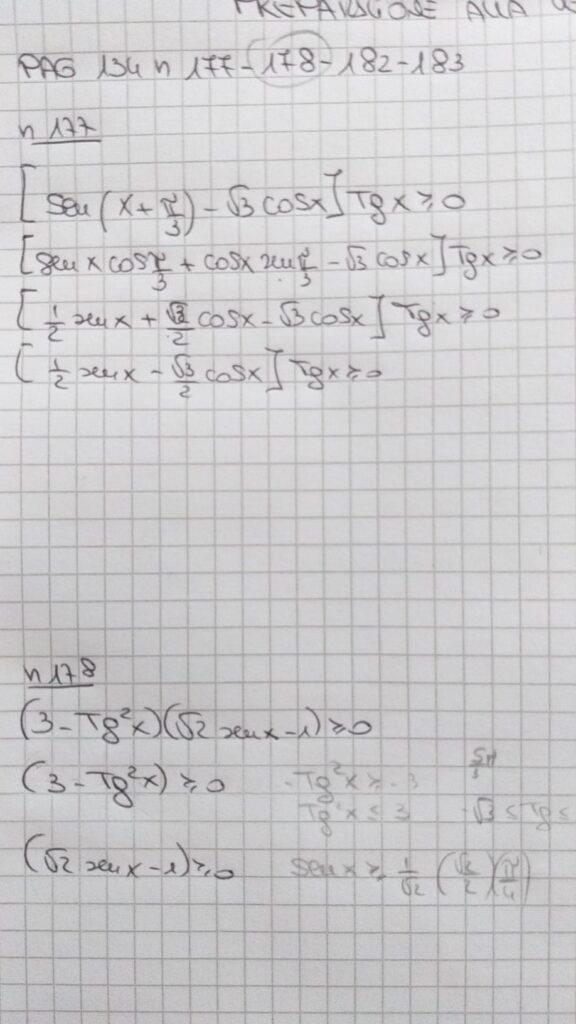 PREPARAZIONE ALLA
PAG 134 n 177-178-182-183
n 177
[sen(x+π/3)-√3 cosx] Tgx≥0
[sen x cosπ/3 + cosx senπ/3 -√3 cosx] Tgx≥0
[1/2 senx + √3/2 cosx-√3 cosx] Tgx≥0
[1/2 senx - √3/2 cosx] Tgx≥0
n 178
(3-Tg²x)(√2 senx-1)≥0
(3-Tg²x)≥0 -Tg²x≥-3
Tg²x≤3 -√3≤Tg≤
(√2 senx-1)≥0 senx≥ 1/√2 (√2/2)(π/4)